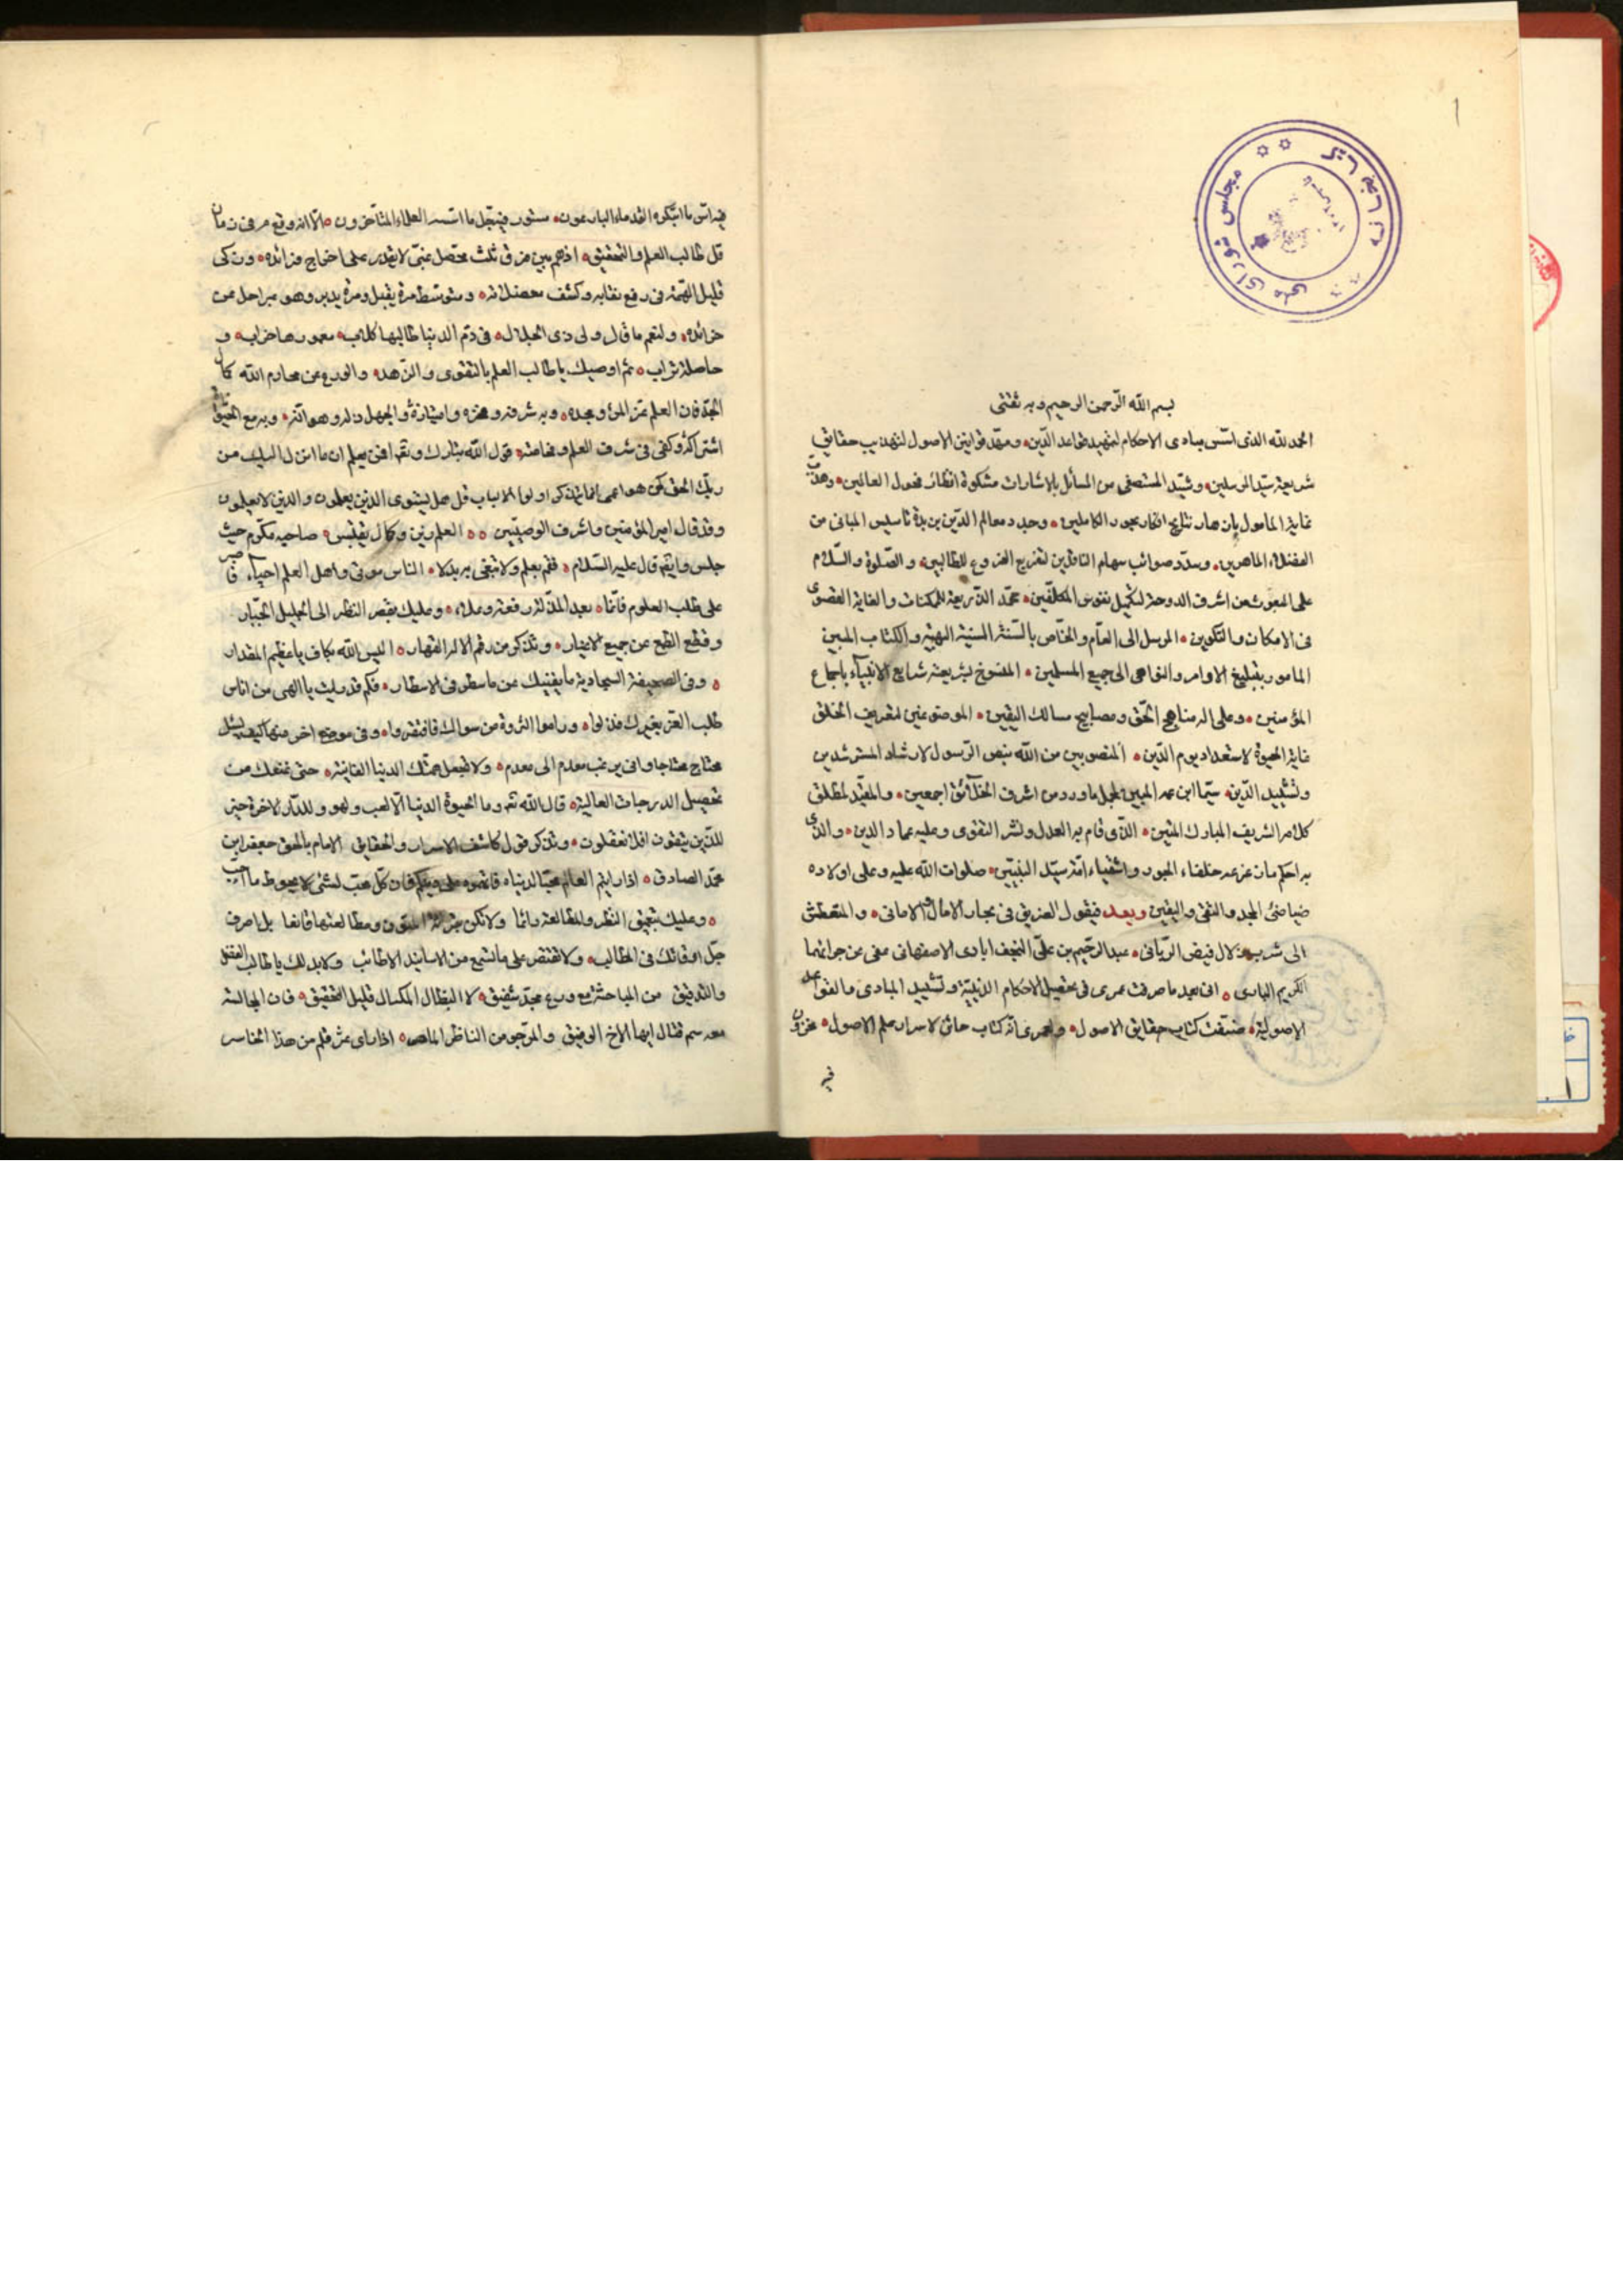 بسم الله الرّحمن الرحيم وبه ثقتى
الحمد لله الذى اسّس مبادى الاحكام لتمهيد قواعد الدّين ومهّد قوانين الاصول لتهذيب حقايق
شريعة سيّد المرسلين وشيّد المستصفى من المسائل بالاشارات مشكوة انظار فحول العالمين وهذّب
غاية المامول بازهار نتايج افكار بحور الكاملين وجدد معالم الدّين بزبدة تاسيس المبانى من
الفضلاء الماهرين وسدّد صوائب سهام الناقدين لتفريع الفروع للطالبين والصّلوة والسّلام
على المبعوث من اشرف الدوحة لتكميل نفوس المكلّفين محمّد الذّريعة للممكنات والغاية القصوى
فى الامكان والتكوين المرسل الى العامّ والخاصّ بالسّنة السنيّة البهيّة والكتاب المبين
المامور بتبليغ الاوامر والنواهى الى جميع المسلمين المنسوخ بشريعته شرايع الانبياء باجماع
المؤمنين وعلى اله مناهج الحقّ ومصابيح مسالك اليقين الموضوعين لتعريف الخلق
غاية الحيوة لاستعداد يوم الدّين المنصوبين من الله بنص الرّسول لارشاد المسترشدين
وتشييد الدّين سيّما ابن عمه المبين لمجمل ما ورد من اشرف الخلائق اجمعين والمقيّد لمطلق
كلامه الشريف المبارك المتين الذى قام به العدل ونشر التقوى وعليه عماد الدين والذى
به احكم مان عزعه خلفاء الجور واشقياء امّة سيّد النبيّين صلوات الله عليه وعلى اولاده
ضياضئ المجد والتقى واليقين وبعد فيقول الغريق فى بحار الامال والامانى والمتعطش
الى شرب زلال فيض الرّبانى عبد الرّحيم بن علىّ النجف ابادى الاصفهانى عفى عن جرائمهما
الكريم البارى انى بعد ما صرفت عمرى فى تحصيل الاحكام الدّينيّة وتشييد المبادى والقواعد
الاصولية صنّفت كتاب حقايق الاصول ولعمرى انّه كتاب حاو لاسرار علم الاصول مخزون
فيه
فيه اسّ ما ابتكره القدماء البارعون مستور فيه جلّ ما اسّسه العلماء المتاخرون الّا انه وقع فى زمان
قل طالب العلم والتحقيق اذ هم بين فرق ثلث محصل غبىّ لا يقدر على اخراج فرائده وذكى
قليل الهمّة فى رفع نقابه وكشف معضلاته ومتوسّط مرة يقبل ومرة يدبر وهو بمراحل عن
خرائده ولنعم ما قال ولى ذى الجلال فى ذمّ الدنيا طالبها كلاب معمورها خراب و
حاصله تراب ثمّ اوصيك يا طالب العلم بالتقوى والزّهد والورع عن محارم الله كمال
الجدّ فان العلم عزّ المرء ومجده وبه شرفه وفخره وامتيازه والجهل ذلّه وهوانه وبه مع الحيوان
اشتراكه وكفى فى شرف العلم وفخامته قول الله تبارك وتعالى افمن يعلم ان ما انزل اليك من
ربّك الحق كمن هو اعمى انما يتذكر اولوا الالباب قل هل يستوى الذين يعلمون والذين لا يعلمون
وقد قال امير المؤمنين واشرف الوصيّين العلم زين وكمال يقتبس صاحبه مكرّم حيث
جلس وايضا قال عليه السّلام فقم بعلم ولا تبغى به بدلا الناس موتى واهل العلم احياء فاصبر
على طلب العلوم فانّما بعد المذلّة رفعة وعلاء وعليك بقصر النظر الى الجليل الجبّار
وقطع الطمع عن جميع الاغيار وتذكر من رقم الاله القهار اليس الله بكاف يا عظيم المقدار
وفى الصحيفة السجادية ما يغنيك عن ما سطر فى الاسطار فكم قد رايت يا الهى من اناس
طلب العز بغيرك فذلوا وراموا الثروة من سواك فافتقروا وفى موضع اخر منها كيف يسئل
محتاج محتاجا وانى يرغب معدم الى معدم ولا تجعل همتك الدنيا الفانية حتى تمنعك من
تحصيل الدرجات العالية قال الله تعالى وما الحيوة الدنيا الّا لعب ولهو وللدّار الاخرة خير
للذين يتقون افلا تعقلون وتذكر قول كاشف الاسرار والحقايق الامام بالحق جعفر ابن
محمّد الصادق اذا رايتم العالم محبّا لدنياه فاتهموه على دينكم فان كلّ محبّ لشئ يحوط ما احب
وعليك بتعميق النظر والمطالعة دائما ولا تكن بقرائة المتون ومطالعتها قانعا بل اصرف
جلّ اوقاتك فى المطالب ولا تقتصر على ما تسمع من الاساتيد الاطائب ولا بد لك يا طالب التحقيق
والتدقيق من المباحثة مع ورع مجدّ شفيق لا البطّال المكسال قليل التحقيق فان المجالسة
معه سم قتال ايها الاخ الوفيق والمرجو من الناظر الماهر اذا راى عثرة قلم من هذا الخاسر
مجلس شورای ملی